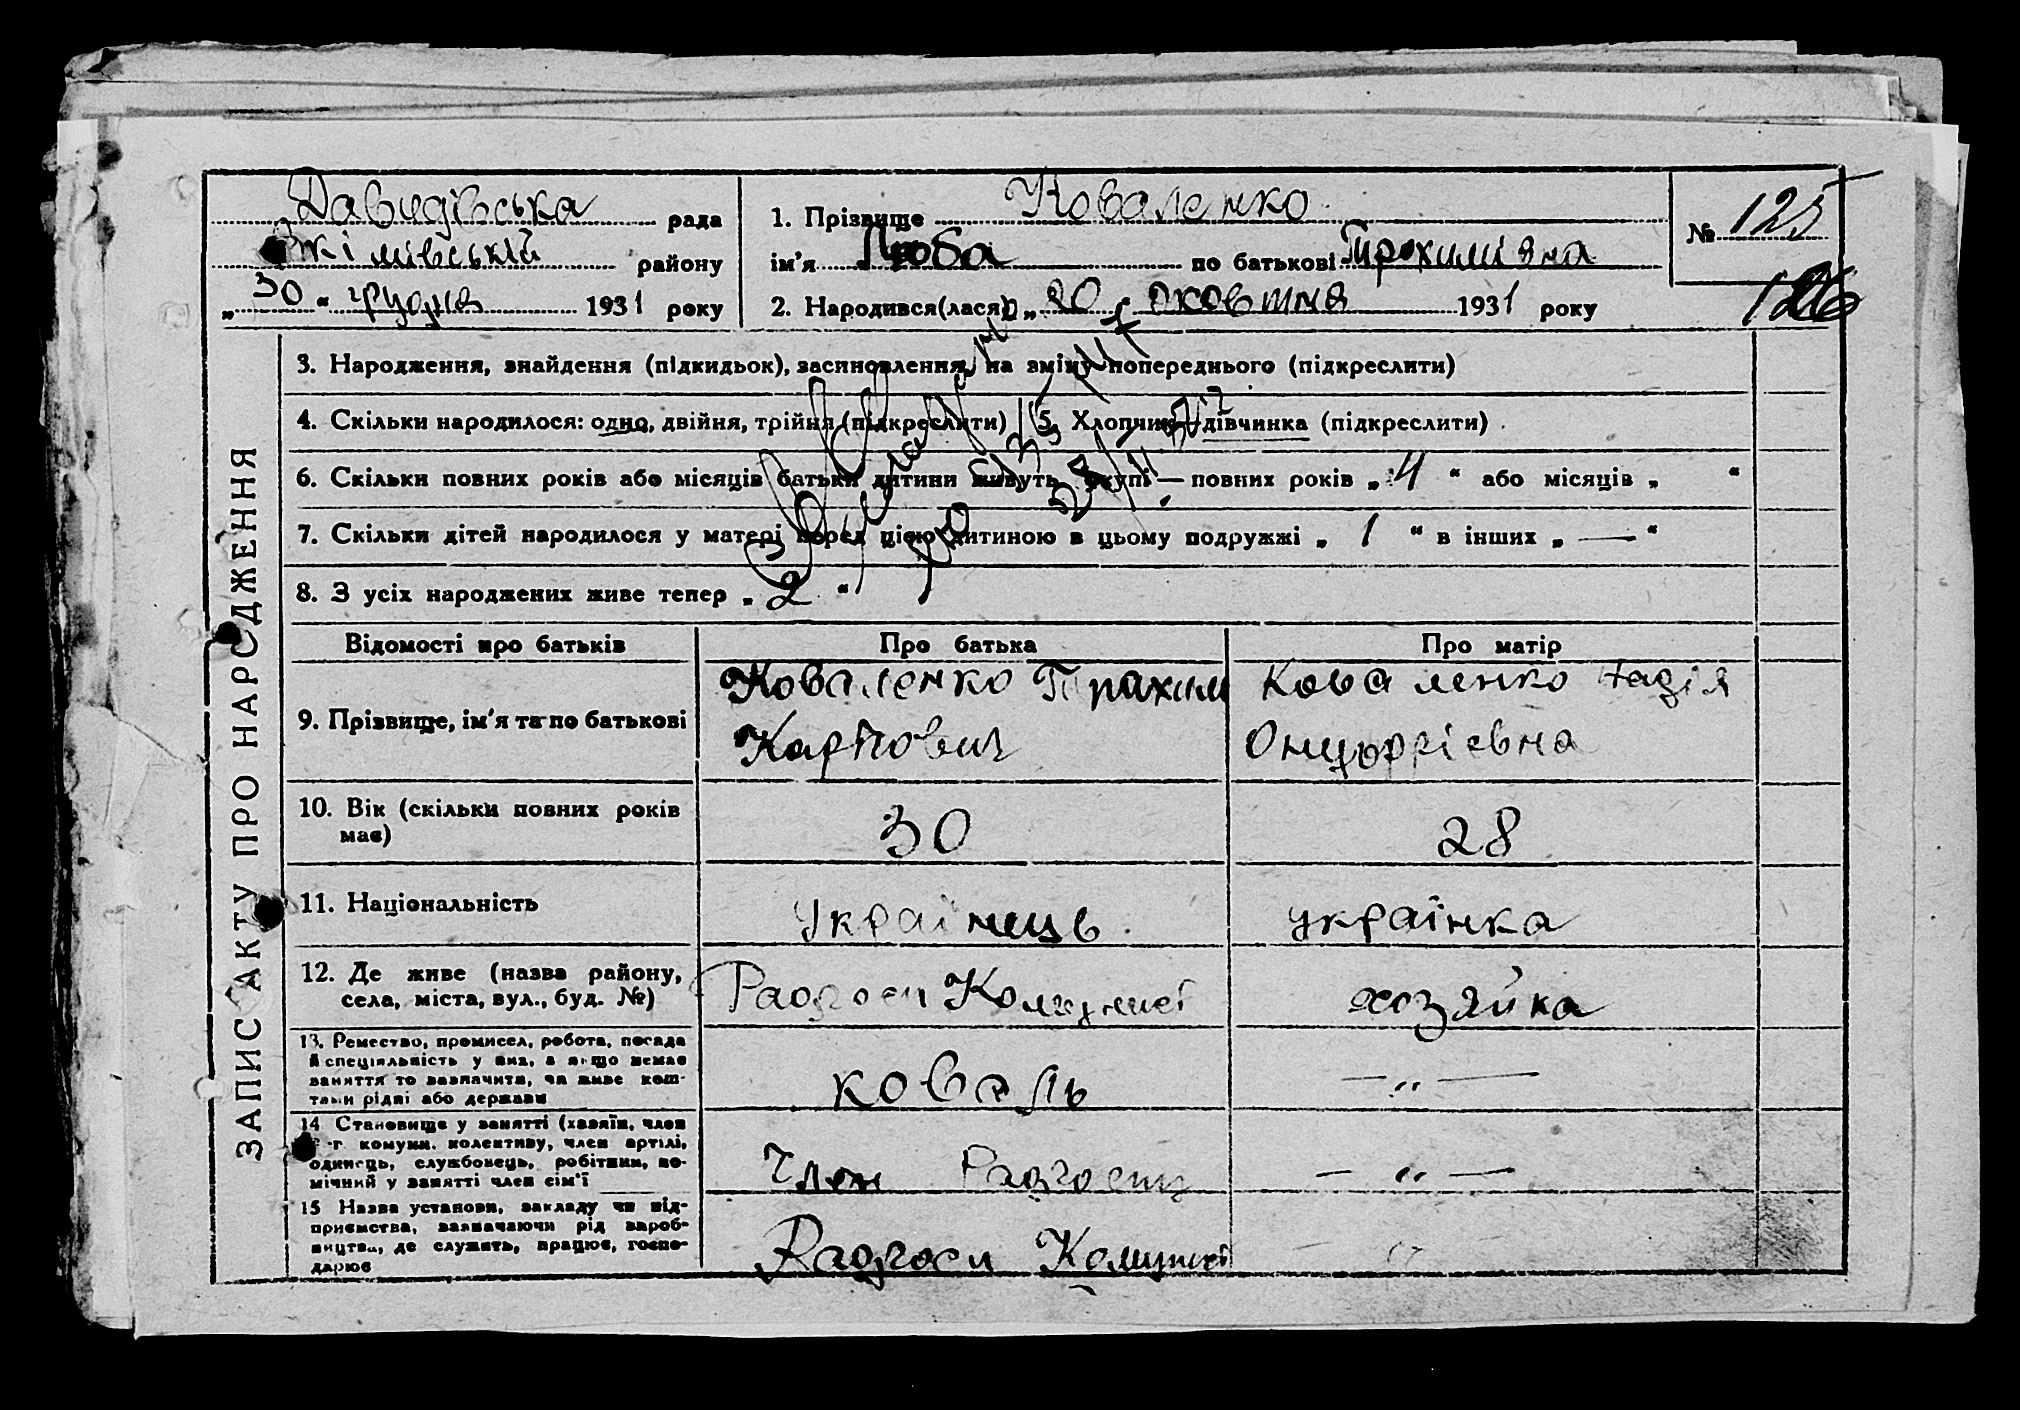 Давидівська рада
Якімівській району
„30“ грудня 1931 року
1. Прізвище Коваленко
ім'я Люба по батькові Трохимівна
2. Народився(лася) „20“ жовтня 1931 року
№ 125
126
ЗАПИС АКТУ ПРО НАРОДЖЕННЯ
3. Народження, знайдення (підкидьок), засиновлення, на зміну попереднього (підкреслити)
4. Скільки народилося: одно, двійня, трійня (підкреслити) 5. Хлопчик, дівчинка (підкреслити)
6. Скільки повних років або місяців батьки дитини живуть вкупі — повних років „4“ або місяців „ “
7. Скільки дітей народилося у матері перед цією дитиною в цьому подружжі „1“ в інших „—“
8. З усіх народжених живе тепер „2“
Відомості про батьків Про батька Про матір
9. Прізвище, ім'я та по батькові
Коваленко Трахим
Карпович
Коваленко Надія
10. Вік (скільки повних років
має)
30
28
11. Національність
Українець
українка
12. Де живе (назва району,
села, міста, вул., буд. №)
Радгосп Комунист
хозяйка
13. Ремество, промисел, робота, посада
й спеціяльність у них, а якщо немає
заняття то зазначити, чи живе кош-
тами рідні або держави
коваль
— „ —
14 Становище у занятті (хазяїн, член
с.-г. комуни. колективу, член артілі,
одинець, службовець, робітник, по-
мічний у занятті член сім'ї
Член Радгоспу
— „ —
15 Назва установи, закладу чи під-
приємства, зазначаючи рід вироб-
ництва, де служить, працює, госпо-
дарює
Радгосп Комунист